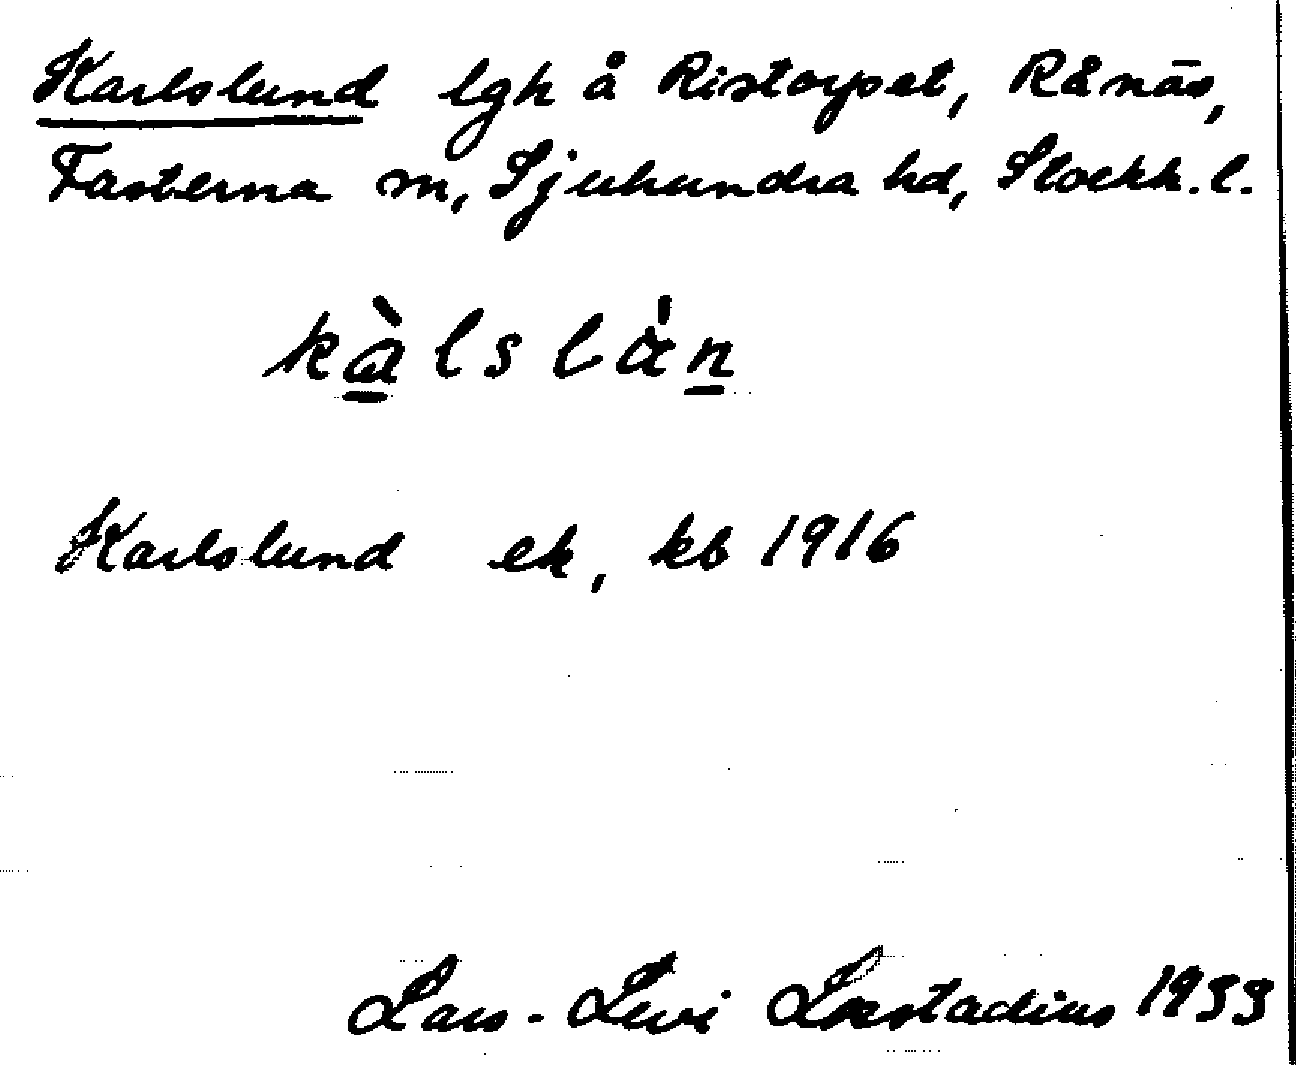 Karlslund lgh å Ristorpet, Rånäs,
Fasterna sn, Sjuhundra hd, Stockh. l.
kàlslàn
Karlslund ek, kb 1916
Lars-Levi Læstadius 1933